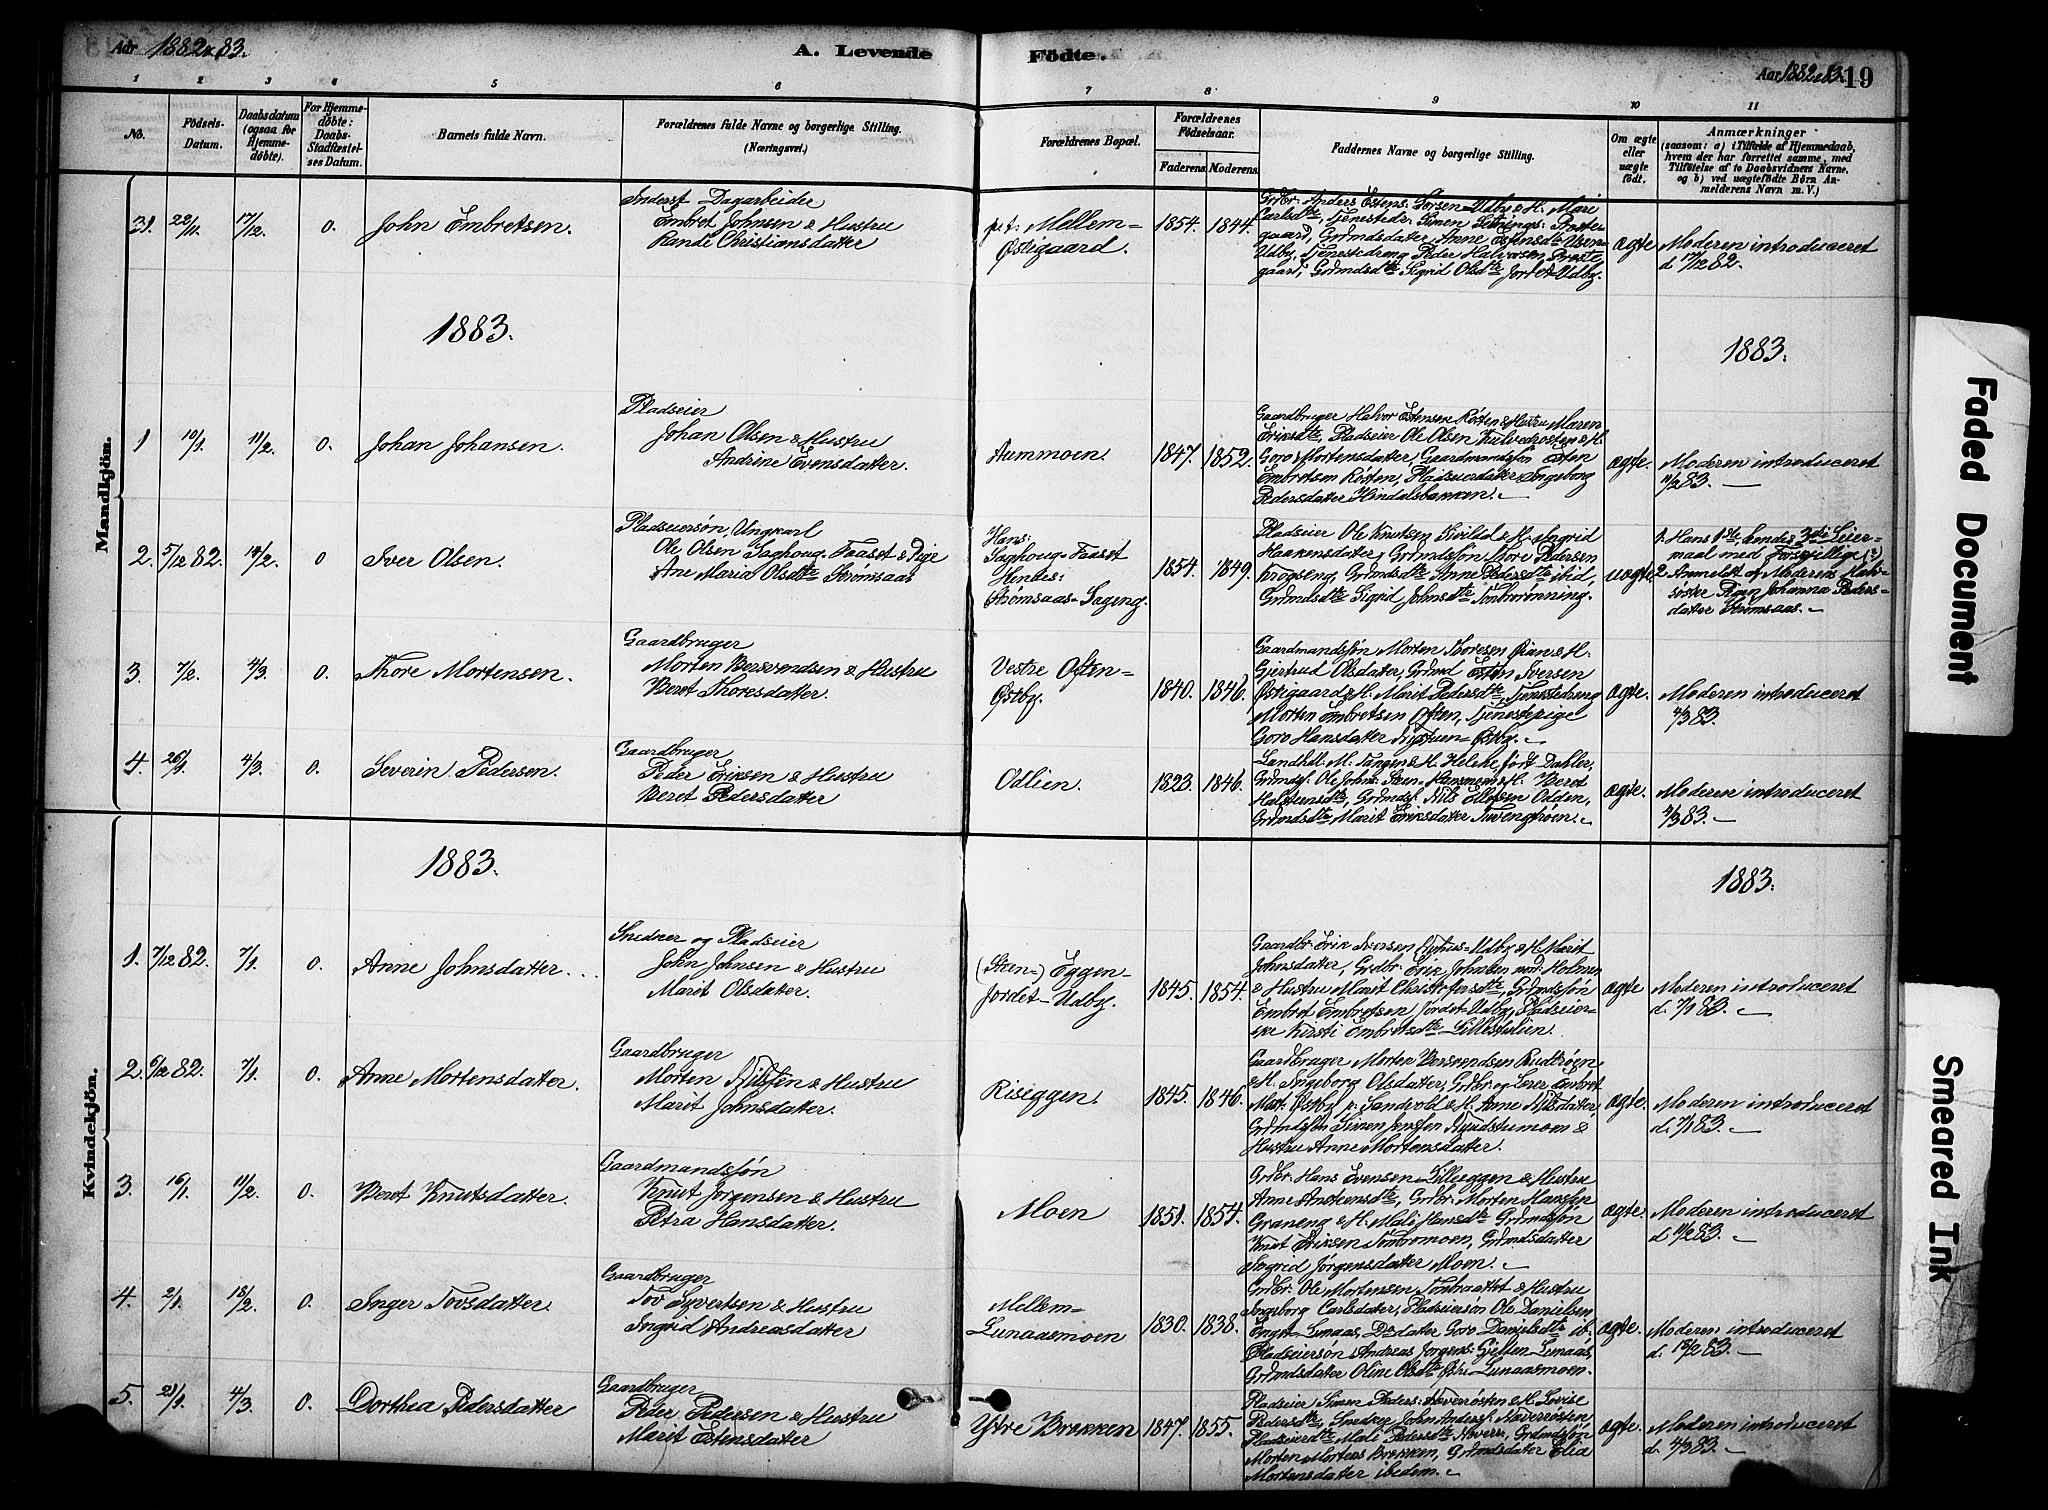 Aar 1882 & 83.
A. Levende Födte.
Aar 1882 & 83. 19
1 2 3 4 5 6 7 8 9 10 11
No.
Födsels-
Datum.
Daabsdatum
(ogsaa for
Hjemme-
döbte).
For Hjemme-
döbte:
Daabs-
Stadfæstel-
ses Datum.
Barnets fulde Navn.
Forældrenes fulde Navne og borgerlige Stilling.
(Næringsvei.)
Forældrenes Bopæl.
Forældrenes
Födselsaar.
Faderens. Moderens.
Faddernes Navne og borgerlige Stilling.
Om ægte
eller
uægte
födt.
Anmærkninger
(saasom: a) i Tilfælde af Hjemmedaab,
hvem der har forrettet samme, med
Tilföielse af to Daabsvidners Navne,
og b) ved uægtefödte Börn An-
melderens Navn m. V.)
Mandkjön.
31. 22/11. 17/12. 0. John Embretsen.
Inderst Dagarbeider
Embret Johnsen & Hustru
Randi Christiansdatter
p. t. Mellem-
Østgaard.
1854. 1844.
Grdbr. Anders Estens: Udby & H. Mari
Carlsdtr, Tjenestedr. Simen
gaard, Grdmdsdatter Anne Estensdtr
Udby, Tjenestedreng Peder Halvorsen
gaard, Grdmdsdtr Sigrid Olsdtr Jordet Udby.
ægte
Moderen introduceret
d. 17/12 82.
1883. 1883.
1 10/1. 11/2. 0. Johan Johansen.
Pladseier
Johan Olsen & Hustru
Andrine Evensdatter.
Aummoen.
1847. 1852.
Gaardbruger Halvor Estensen Røsten & Hustru Maren
Eriksdtr, Pladseier Ole Olsen Kulvedrosten & H.
Goro Mortensdatter, Gaardmandssøn Esten
Embretsen Røsten, Pladseierdatter Ingeborg
Pedersdatter Hindalsbakken.
ægte.
Moderen introduceret
11/2 83.
2. 5/12 82. 14/2. 0 Iver Olsen.
Pladseiersøn, Ungkarl
Ole Olsen Saghoug-Faaset & Pige
Ane Maria Olsdtr Strømsaas
Hans:
Saghoug-Faaset
Hendes:
Strømsaas-Sageng.
1854. 1849.
Pladseier Ole Knutsen Kvilld & H. Ingrid
Haakensdatter, Grdmdssøn Thore Pedersen
Krogseng, Grdmdsdtr Anne Pedersdtr ibid,
Grdmdsdtr Sigrid Johnsdtr Tønbrorønning.
uægte
1. Hans 1ste, hendes 3die Leier-
maal med Forskjellige (:)
2. Anmeldt af Moderens Halv-
søster Pigen Johanna Peders-
datter Strømsaas.
3. 7/2. 4/3. 0. Thore Mortensen.
Gaardbruger
Morten Bersvendsen & Hustru
Beret Thoresdatter.
Vestre Often-
Østby.
1840. 1846.
Gaardmandssøn Morten Thoresen Rian & H.
Gjertrud Olsdatter, Grdmd Esten Iversen
Østgaard & H. Marit Pedersdtr, Tjenestedreng
Morten Embretsen Often, Tjenestepige
Goro Hansdatter Nystuen-Østby.
ægte.
Moderen introduceret
4/3 83.
4. 26/1. 4/3. 0. Severin Pedersen.
Gaardbruger
Peder Eriksen & Hustru
Beret Pedersdatter
Odlien.
1823. 1846.
Landhdl. M. Tangen & H. Helene født Dahler,
Grdmdsf. Ole Johns: & H. Beret
Halstensdtr, Grdmdsf. Nils Ellefsen Odden,
Grdmdsdtr Marit Eriksdatter Tuvengmoen.
ægte.
Moderen introduceret
4/3 83.
Kvindekjön.
1883. 1883.
1. 7/12 82. 7/1. 0. Anne Johnsdatter.
Snedker og Pladseier
John Johnsen & Hustru
Marit Olsdatter.
(Steen-) Eggen-
Jordet-Udby.
1845. 1854.
Gaardbr. Erik Iversen Nyhus-Udby & H. Marit
Johnsdatter, Grdbr. Erik Johnsen nord. Holmen
& Hustru Marit Christophersdtr, Grdmdssøn
Embret Embretsen Jordet-Udby, Pladseier-
ske Kirsti Embretsdtr Lillestulien.
ægte
Moderen introduceret
d. 7/1 83.
2. 6/12 82. 7/1. 0. Anne Mortensdatter.
Gaardbruger
Morten Nilssen & Hustru
Marit Johnsdatter.
Riseggen.
1845. 1846.
Gaardbruger Morten Bersvendsen Rudtrøen
& H. Ingeborg Olsdatter, Grdbr. og Lærer Embret
Mort. Østby p. Sandvold & H. Anne Nilsdatter,
Grdmdssøn Simen Jonssen Rundstumoen &
Hustru Anne Mortensdatter.
ægte.
Moderen introduceret
d. 7/1 83.
3. 16/1. 11/2. 0. Beret Knutsdatter.
Gaardmandssøn
Knut Jorgensen & Hustru
Petra Hansdatter.
Moen
1851. 1854.
Grdbr. Hans Evensen Lilleeggen & Hustru
Anne Anstensdtr, Grdbr. Morten Hanssen
Graneng & H. Mali Hansdtr, Grdmdssøn
Knut Eriksen Tønbromoen, Grdmdsdatter
Ingrid Jørgensdatter Moen.
ægte.
Moderen introduceret
d. 11/2 83.
4. 2/1. 18/2. 0. Inger Tovsdatter.
Gaardbruger
Tov Syvertsen & Hustru
Ingrid Andreasdatter
Mellem-
Lunaasmoen
1830. 1838.
Grdbr. Ole Mortensen Tønbraattet & Hustru
Ingeborg Carlsdatter, Pladseiersøn Ole Danielsen
Engen-Lunaas, Do datter Goro Danielsdtr ib.
Pladseiersøn Andreas Jorgens: Gjelten Lunaas,
Grdmdsdatter Oline Olsdtr Østre Lunaasmoen.
ægte.
Moderen introduceret
d. 18/2 83.
5. 21/1. 4/3. 0. Dorthea Pedersdatter
Gaardbruger
Peder Pedersen & Hustru
Marit Estensdatter
Ytre Brækken
1847. 1855.
Pladseier Simen Peders: Haverrøsten & H. Lovise
Pedersdtr, Snedker John Andersf. Haverrøsten
Pladseierdtr Mali Pedersdtr Haverr, Grdmdssøn
Morten Mortens Brækken, Grdmdsdatter Elia
Mortensdatter ibedem.
ægte.
Moderen introduceret
d. 4/3 83.
Faded Document
Smeared Ink